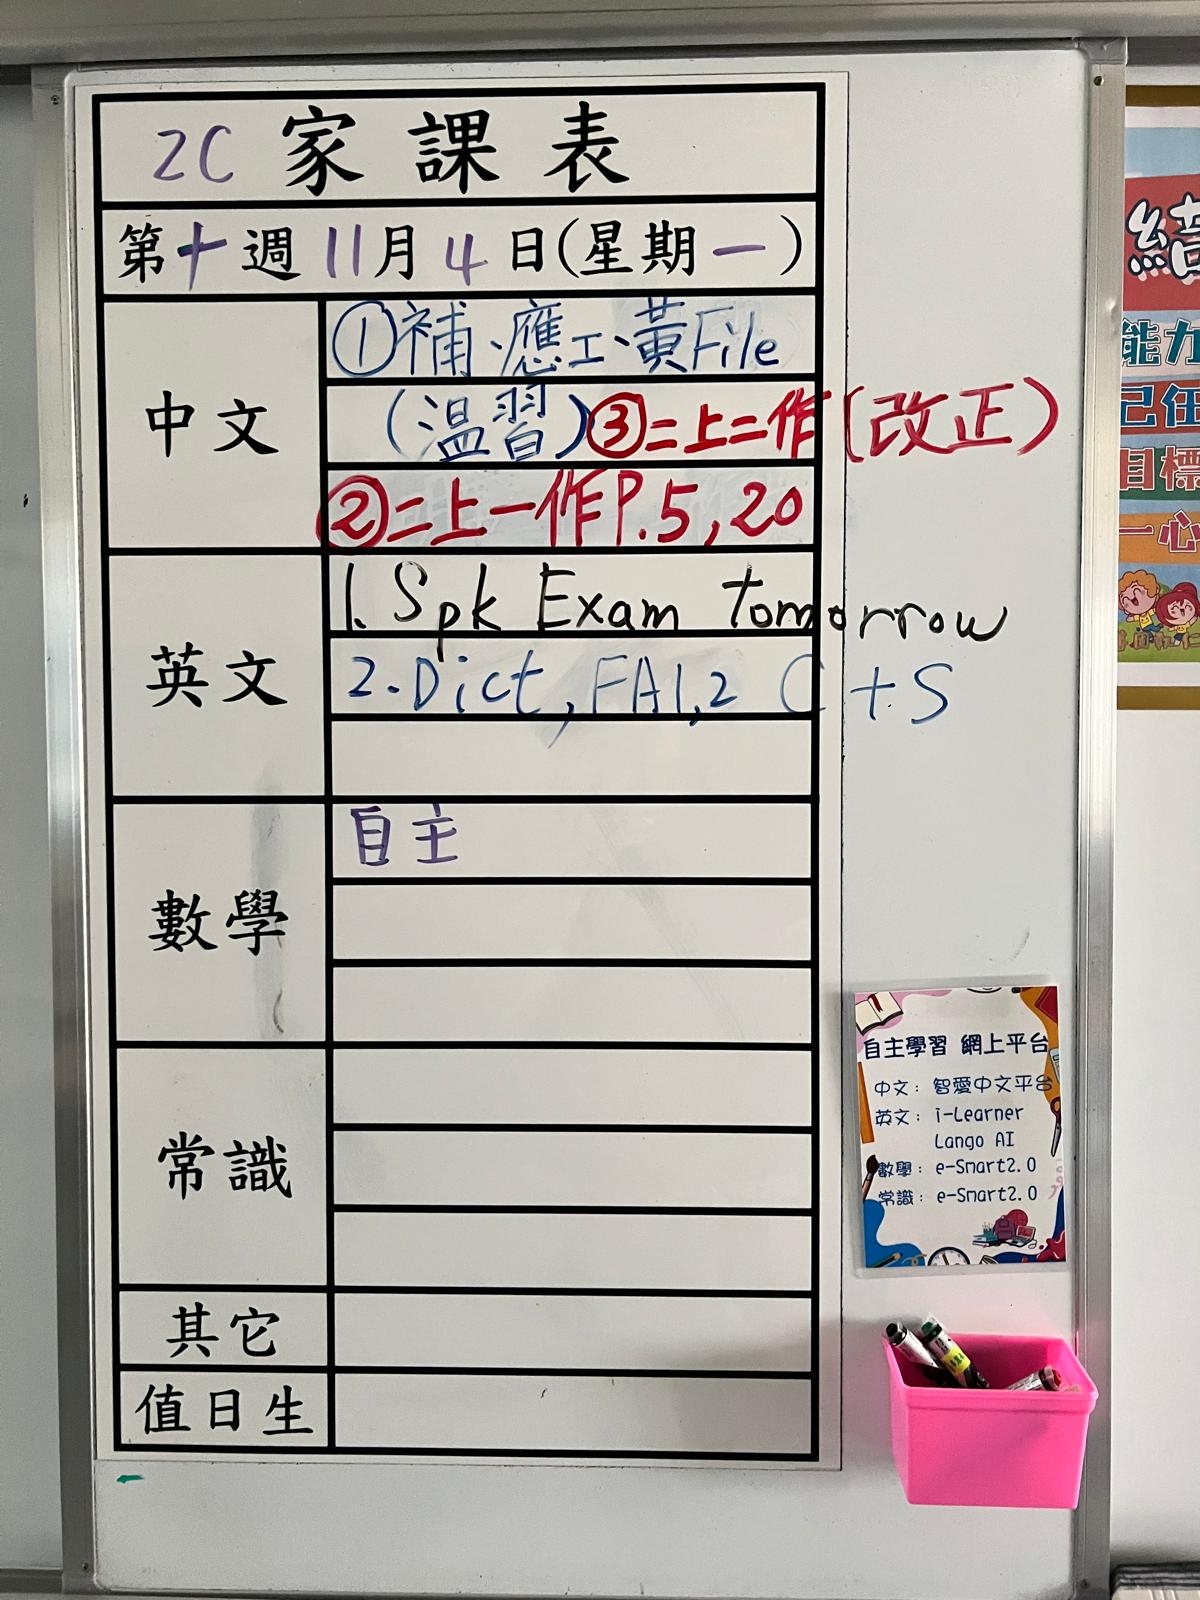 2C 家課表
第十週 11月 4 日(星期一)
中文
①補、應工、黃File
(溫習)③二上二作(改正)
②二上一作P.5,20
英文
1. Spk Exam tomorrow
2. Dict, FA1,2 C + S
數學
自主
常識
其它
值日生
自主學習 網上平台
中文: 智愛中文平台
英文: i-Learner
Lango AI
數學: e-Smart2.0
常識: e-Smart2.0
能力
己任
目標
一心一